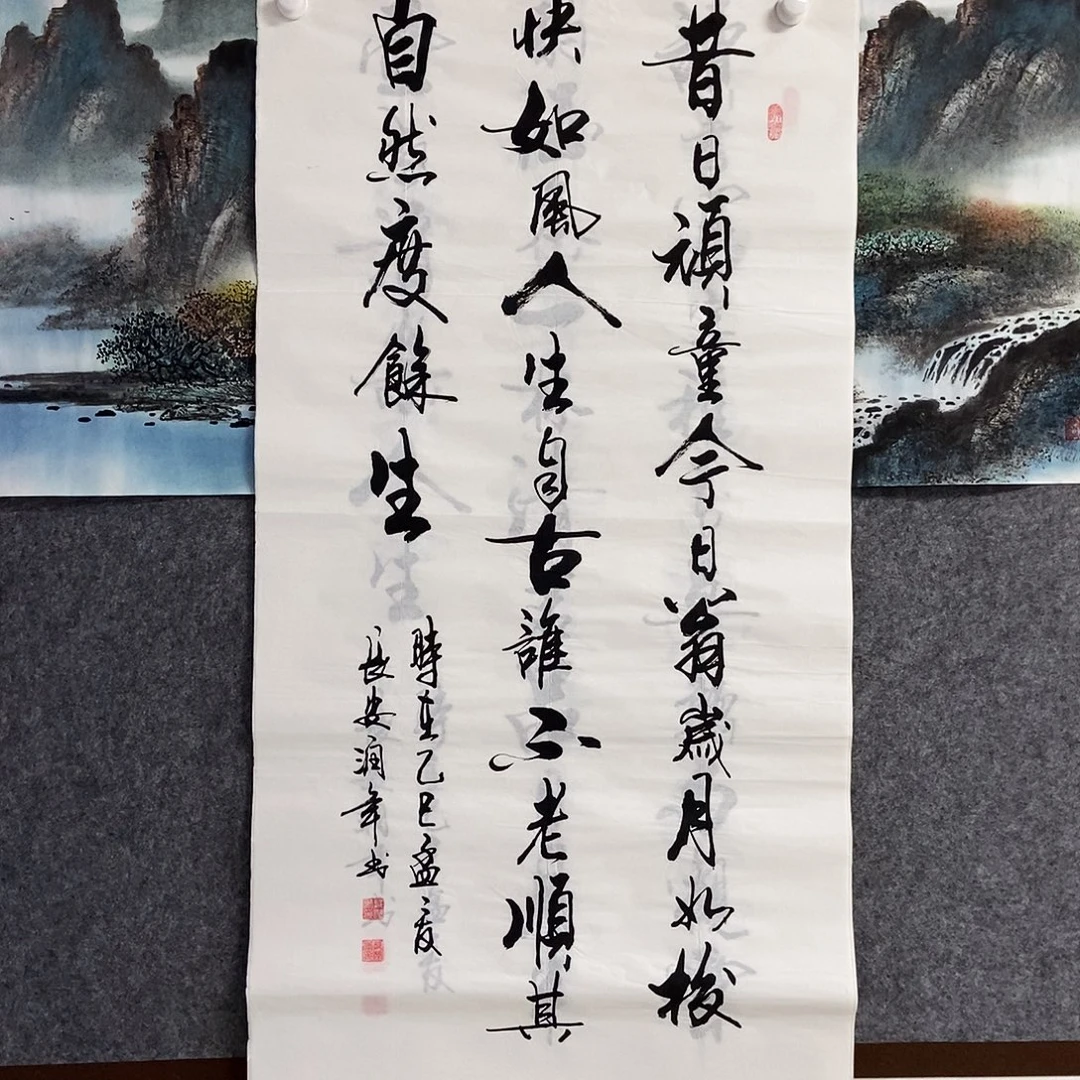 昔日頑童今日翁歲月如梭
快如風人生自古誰不老順其
自然度餘生
時在乙巳孟夏
長安潤年书